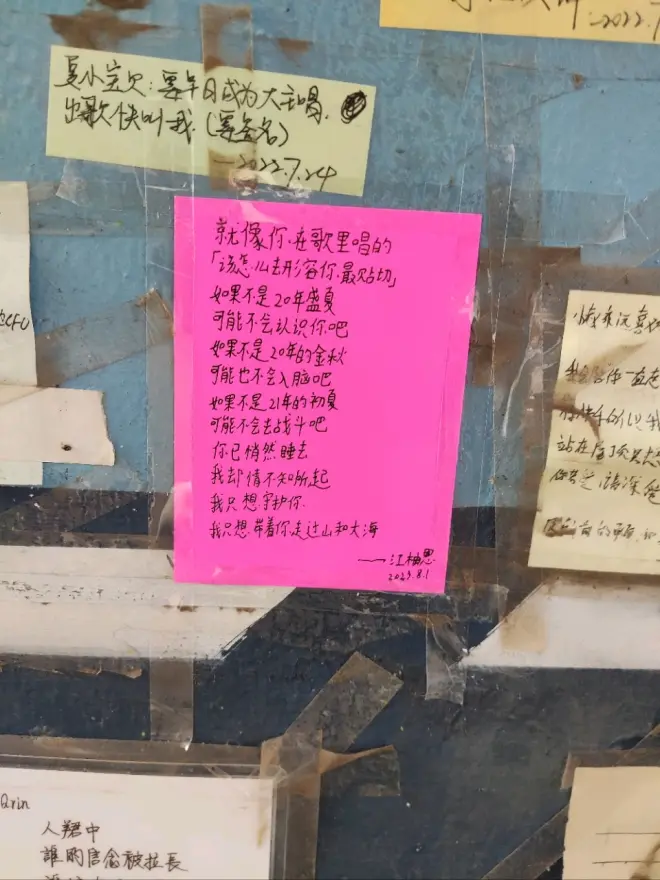 2022.7
夏小宝贝:要早日成为大主唱,
出歌快叫我.(要签名)
—2022.7.24
就像你在歌里唱的
「该怎么去形容你最贴切」
如果不是20年盛夏
可能不会认识你吧
如果不是20年的金秋
可能也不会入脑吧
如果不是21年的初夏
可能不会去战斗吧
你已悄然睡去
我却情不知所起
我只想守护你.
我只想带着你走过山和大海
——江柚思
2023.8.1
CFU
站在
Qrin
人群中
誰的信念被拉長